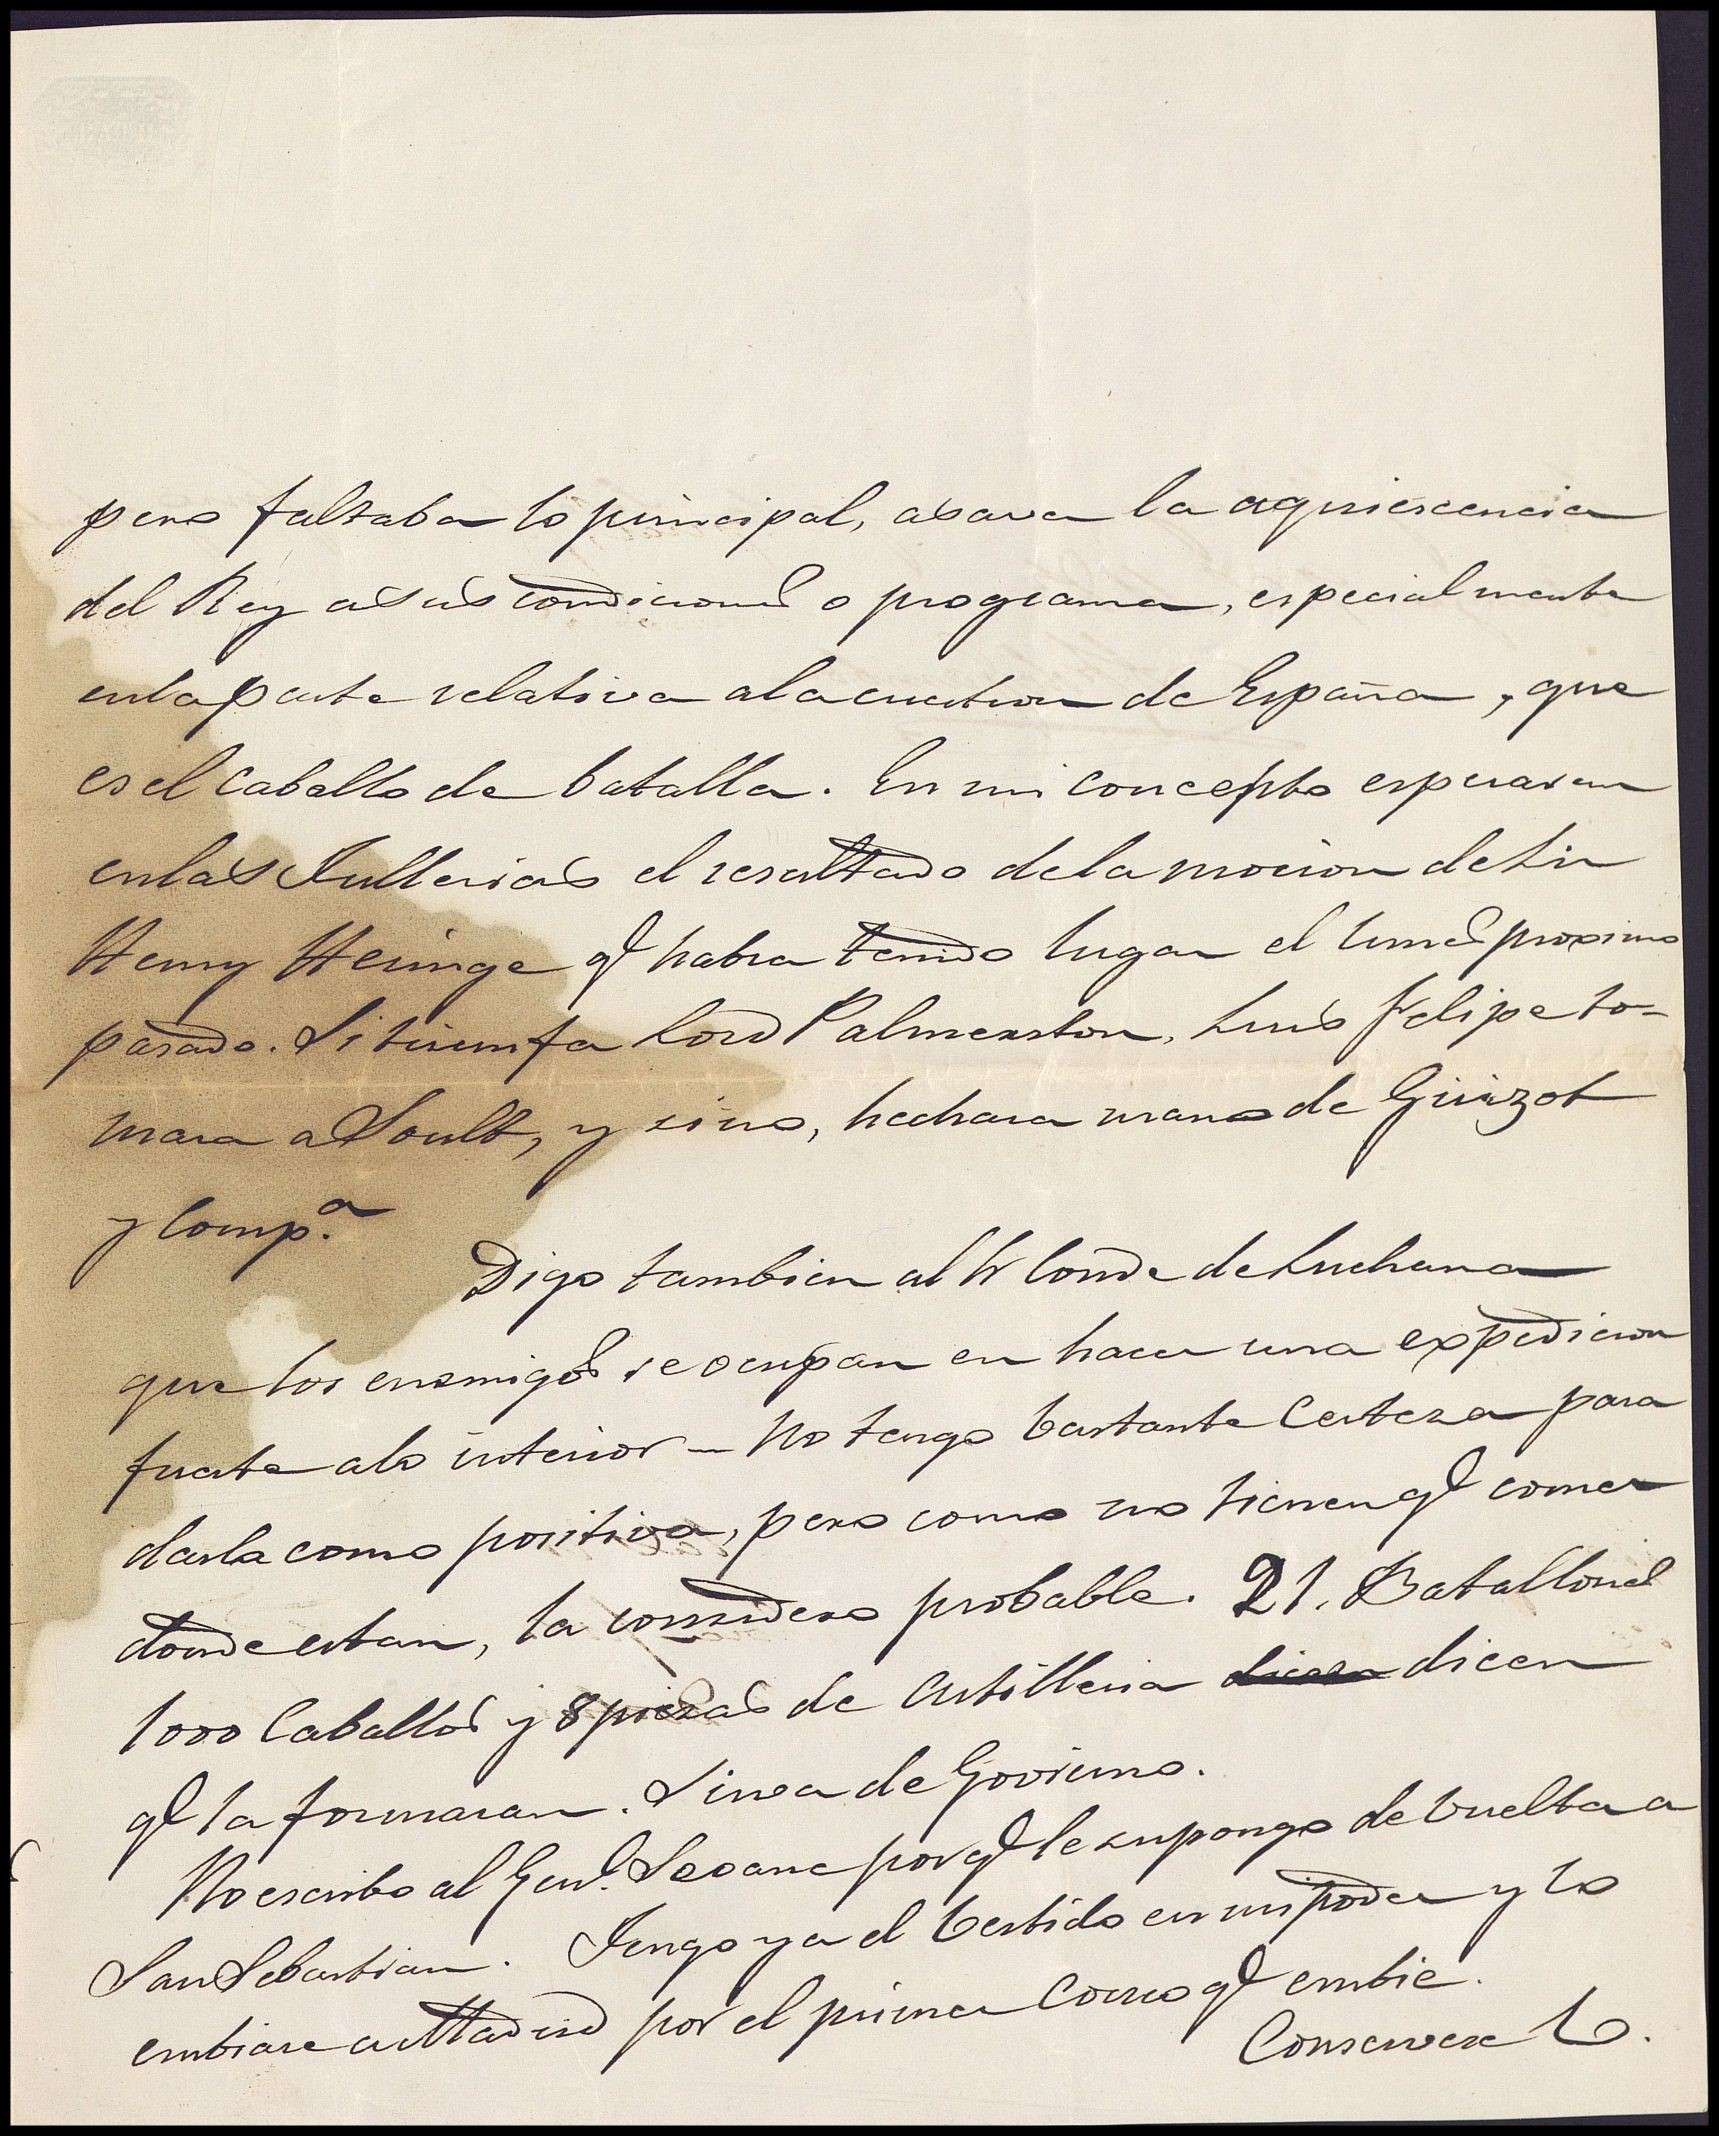 pero faltaba lo principal, asaver la aquiescencia
del Rey a sus condiciones o programa, especialmente
en la parte relativa a la cuestion de España, que
es el caballo de batalla. En mi concepto esperaran
en las Tullerias el resultado de la mocion de Sir
Henry Heringe q.e habra tenido lugar el lunes proximo
pasado. Si triunfa Lord Palmerston, Luis Felipe to-
mara a Soult, y sino, hechara mano de Guizot
y Comp.a
Digo tambien al Sr Conde de Luchana
que los enemigos se ocupan en hacer una expedicion
fuerte a lo interior — No tengo bastante certeza para
darla como positiva, pero como no tienen q.e comer
donde estan, la considero probable. 21. Batallones
1000 Caballos y 8 piezas de Artilleria dicen dicen
q.e la formaran. Sirva de Govierno.
No escribo al Gen.l Seoane porq.e le supongo de vuelta a
San Sebastian. Tengo ya el Vestido en mi poder y lo
embiare a Madrid por el primer Correo q.e embie.
Conservese V.